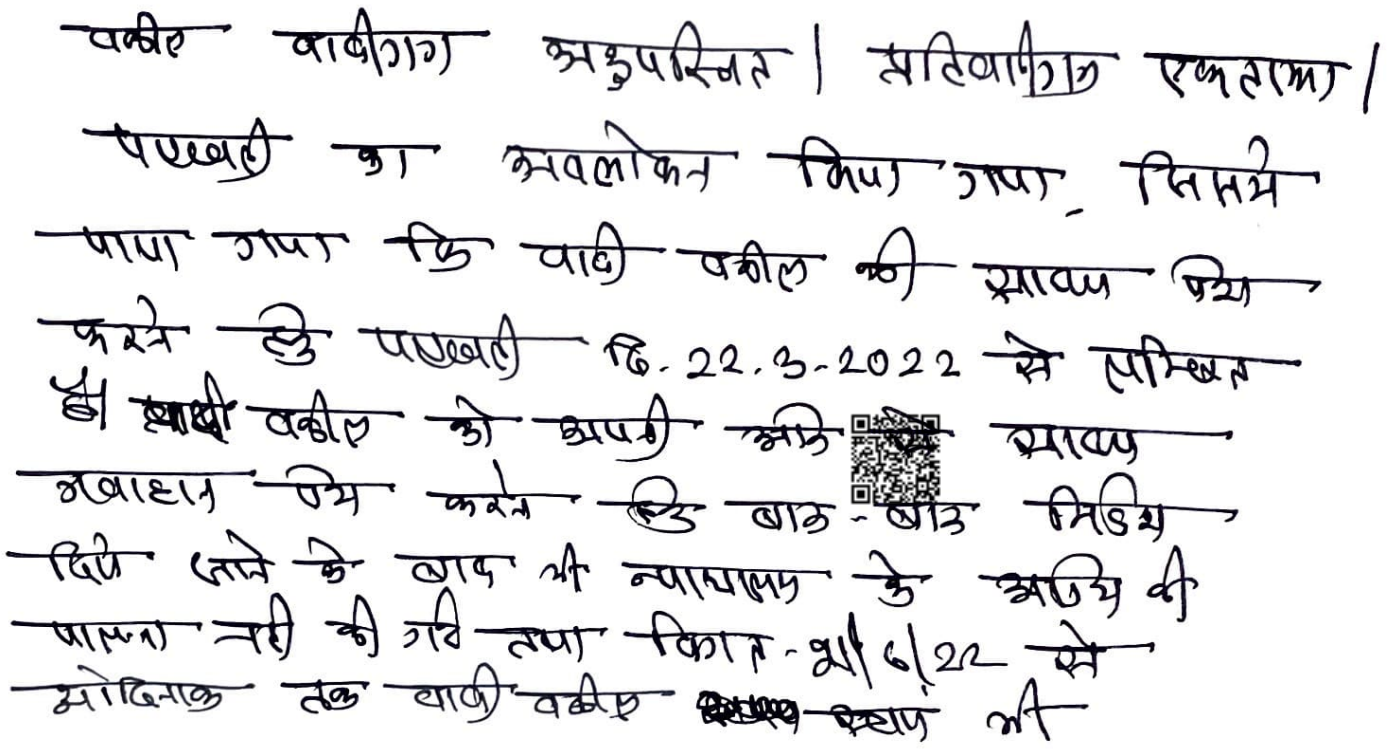 वकील वादीगण अनुपस्थित। प्रतिवादीगण एकतरफा।
पत्रावली का अवलोकन किया गया, जिसमे
पाया गया कि वादी वकील की साक्ष्य पेश
करने हेतु पत्रावली दि. 22.3.2022 से लम्बित
है। वादी वकील को अपनी ओर से साक्ष्य
गवाहान पेश करने हेतु बार-बार निर्देश
दिये जाने के बाद भी न्यायालय के आदेश की
पालना नही की गई तथा दिनांक 6/22 से
आदिनांक तक वादी वकील स्वयं भी